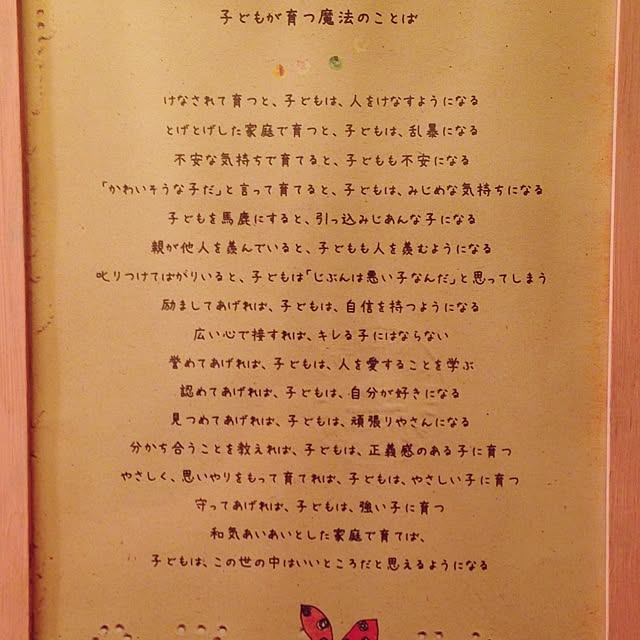 子どもが育つ魔法のことば
けなされて育つと、子どもは、人をけなすようになる
とげとげした家庭で育つと、子どもは、乱暴になる
不安な気持ちで育てると、子どもも不安になる
「かわいそうな子だ」と言って育てると、子どもは、みじめな気持ちになる
子どもを馬鹿にすると、引っ込みじあんな子になる
親が他人を羨んでいると、子どもも人を羨むようになる
叱りつけてばがりいると、子どもは「じぶんは悪い子なんだ」と思ってしまう
励ましてあげれば、子どもは、自信を持つようになる
広い心で接すれば、キレる子にはならない
誉めてあげれば、子どもは、人を愛することを学ぶ
認めてあげれば、子どもは、自分が好きになる
見つめてあげれば、子どもは、頑張りやさんになる
分かち合うことを教えれば、子どもは、正義感のある子に育つ
やさしく、思いやりをもって育てれば、子どもは、やさしい子に育つ
守ってあげれば、子どもは、強い子に育つ
和気あいあいとした家庭で育てば、
子どもは、この世の中はいいところだと思えるようになる